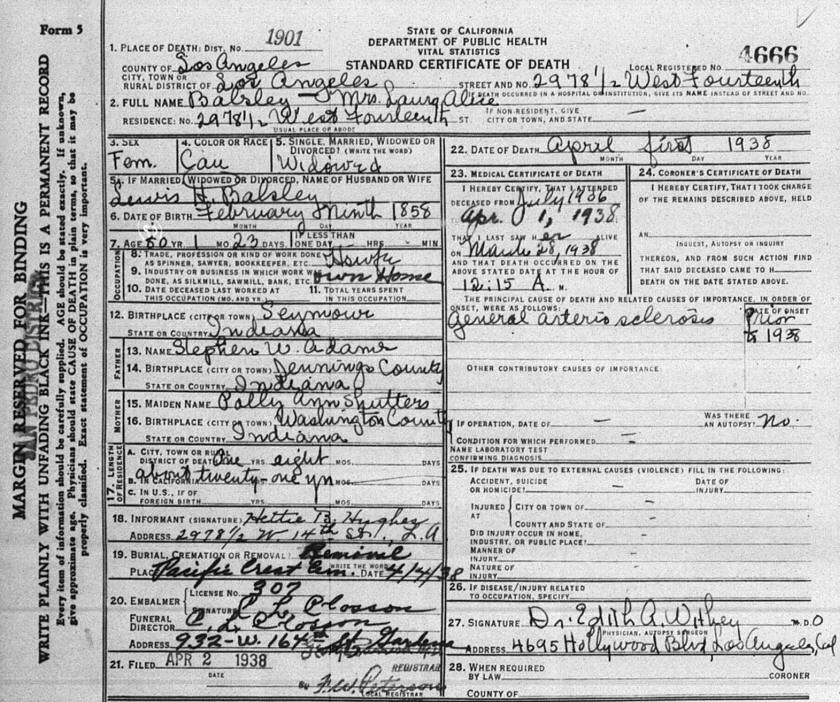 Form 5
MARGIN RESERVED FOR BINDING
WRITE PLAINLY WITH UNFADING BLACK INK—THIS IS A PERMANENT RECORD
Every item of information should be carefully supplied. AGE should be stated exactly. If unknown,
give approximate age. Physicians should state CAUSE OF DEATH in plain terms, so that it may be
properly classified. Exact statement of OCCUPATION is very important.
STATE OF CALIFORNIA
DEPARTMENT OF PUBLIC HEALTH
VITAL STATISTICS
STANDARD CERTIFICATE OF DEATH
1. PLACE OF DEATH: DIST. NO. 1901
LOCAL REGISTERED NO. 4666
COUNTY OF Los Angeles
CITY, TOWN OR RURAL DISTRICT OF Los Angeles STREET AND NO. 2978 1/2 West Fourteenth
IF DEATH OCCURRED IN A HOSPITAL OR INSTITUTION, GIVE ITS NAME INSTEAD OF STREET AND NO.
2. FULL NAME Balsley — Mrs. Laura Alice
RESIDENCE: NO. 2978 1/2 West Fourteenth ST. IF NON-RESIDENT, GIVE CITY OR TOWN, AND STATE —
USUAL PLACE OF ABODE
3. SEX Fem. 4. COLOR OR RACE Cau 5. SINGLE, MARRIED, WIDOWED OR DIVORCED? (WRITE THE WORD) Widowed
5A. IF MARRIED, WIDOWED OR DIVORCED, NAME OF HUSBAND OR WIFE
Lewis H. Balsley
6. DATE OF BIRTH February Ninth 1858
MONTH DAY YEAR
7. AGE 80 YR. 1 MO. 23 DAYS IF LESS THAN ONE DAY HRS. MIN.
OCCUPATION
8. TRADE, PROFESSION OR KIND OF WORK DONE AS SPINNER, SAWYER, BOOKKEEPER, ETC. Hswfe
9. INDUSTRY OR BUSINESS IN WHICH WORK WAS DONE, AS SILKMILL, SAWMILL, BANK, ETC. own Home
10. DATE DECEASED LAST WORKED AT THIS OCCUPATION (MO. AND YR.) 11. TOTAL YEARS SPENT IN THIS OCCUPATION
12. BIRTHPLACE (CITY OR TOWN) Seymour
STATE OR COUNTRY Indiana
FATHER
13. NAME Stephen W. Adams
14. BIRTHPLACE (CITY OR TOWN) Jennings County
STATE OR COUNTRY Indiana
MOTHER
15. MAIDEN NAME Polly Ann Shutters
16. BIRTHPLACE (CITY OR TOWN) Washington County
STATE OR COUNTRY Indiana
17 LENGTH OF RESIDENCE
A. CITY, TOWN OR RURAL DISTRICT OF DEATH One YRS. eight MOS. DAYS
B. IN CALIFORNIA about twenty-one yrs MOS. DAYS
C. IN U.S., IF OF FOREIGN BIRTH YRS. MOS. DAYS
18. INFORMANT (SIGNATURE) Hettie B. Hughey
ADDRESS 2978 1/2 W 14th St., L.A
19. BURIAL, CREMATION OR REMOVAL? Removal
WRITE THE WORD
PLACE Pacific Crest Cem. DATE 4/4/38
20. EMBALMER LICENSE NO. 307
SIGNATURE C. L. Closson
FUNERAL DIRECTOR C. L. Closson
ADDRESS 932-W. 164th St. Gardena
21. FILED APR 2 1938
DATE
REGISTRAR
BY F. W. Peterson
LOCAL REGISTRAR
22. DATE OF DEATH April first 1938
MONTH DAY YEAR
23. MEDICAL CERTIFICATE OF DEATH
I HEREBY CERTIFY, THAT I ATTENDED
DECEASED FROM July 1936
Apr. 1, 1938
THAT I LAST SAW her ALIVE
ON March 28, 1938
AND THAT DEATH OCCURRED ON THE
ABOVE STATED DATE AT THE HOUR OF
12:15 A. M.
24. CORONER'S CERTIFICATE OF DEATH
I HEREBY CERTIFY, THAT I TOOK CHARGE
OF THE REMAINS DESCRIBED ABOVE, HELD
AN
INQUEST, AUTOPSY OR INQUIRY
THEREON, AND FROM SUCH ACTION FIND
THAT SAID DECEASED CAME TO H
DEATH ON THE DATE STATED ABOVE.
THE PRINCIPAL CAUSE OF DEATH AND RELATED CAUSES OF IMPORTANCE, IN ORDER OF
ONSET, WERE AS FOLLOWS: DATE OF ONSET
General arterio sclerosis Prior
to 1938
OTHER CONTRIBUTORY CAUSES OF IMPORTANCE:
IF OPERATION, DATE OF — WAS THERE AN AUTOPSY? No.
CONDITION FOR WHICH PERFORMED —
NAME LABORATORY TEST
CONFIRMING DIAGNOSIS —
25. IF DEATH WAS DUE TO EXTERNAL CAUSES (VIOLENCE) FILL IN THE FOLLOWING:
ACCIDENT, SUICIDE OR HOMICIDE? — DATE OF INJURY —
INJURED AT CITY OR TOWN OF —
COUNTY AND STATE OF —
DID INJURY OCCUR IN HOME, INDUSTRY, OR PUBLIC PLACE? —
MANNER OF INJURY —
NATURE OF INJURY —
26. IF DISEASE/INJURY RELATED TO OCCUPATION, SPECIFY
27. SIGNATURE Dr. Edith A. Withey M.D.O
PHYSICIAN, AUTOPSY SURGEON
ADDRESS 4695 Hollywood Blvd, Los Angeles, Cal
28. WHEN REQUIRED BY LAW CORONER
COUNTY OF